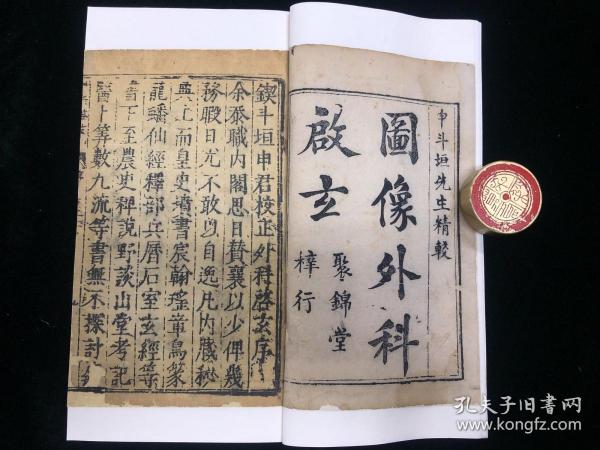 申斗垣先生精較
圖像外科
啟玄
聚錦堂
梓行
鍥斗垣申君校正外科啓玄序
余忝職内閣思日贊襄以少俾幾
務暇日尤不敢以自逸凡内藏秘
典上而皇史墳書宸翰瑤章鳥篆
龍譜仙經釋部兵曆石室玄經等
書下至農史稗說野談山堂考記
醫卜算數九流等書無不探討
孔夫子旧書网
www.kongfz.com